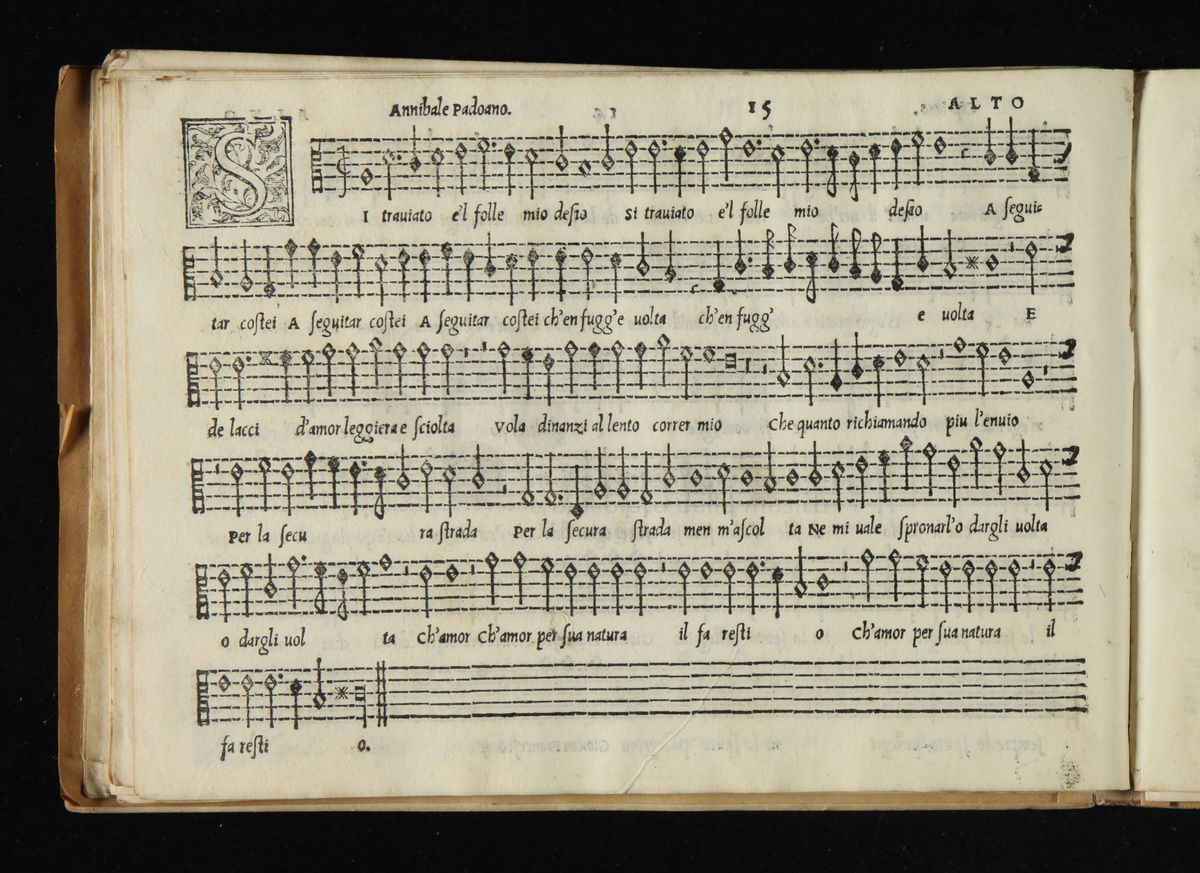 Annibale Padoano. 15 ALTO
SI trauiato e'l folle mio desio Si trauiato e'l folle mio desio A segui=
tar costei A seguitar costei A seguitar costei ch'en fugg'e uolta ch'en fugg' e uolta E
de lacci d'amor leggiera e sciolta vola dinanzi al lento correr mio che quanto richiamando piu l'enuio
Per la secu ra strada Per la secura strada men m'ascol ta Ne mi uale spronarl'o dargli uolta
o dargli uol ta ch'amor ch'amor per sua natura il fa resti o ch'amor per sua natura il
fa resti o.